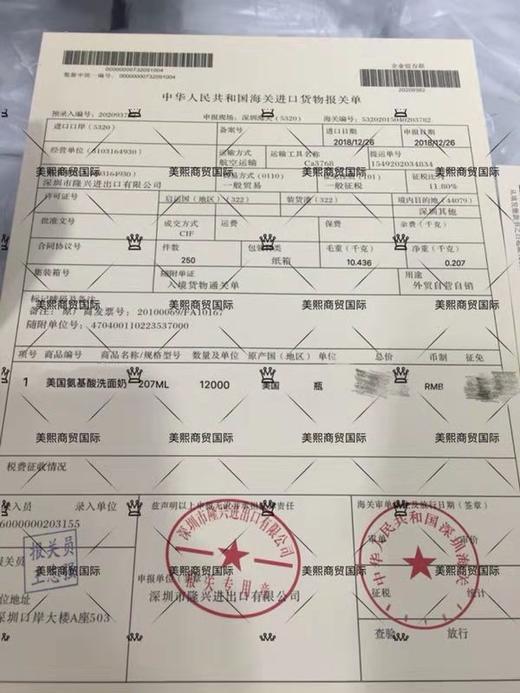 000000000732091004
整个中统一编号: 000000000732091004
企业留存联
20209382
中华人民共和国海关进口货物报关单
预录入编号:2020937
申报现场: 深圳海关 (5320)
海关编号: 53202015040203782
进口口岸(5320)
备案号
进口日期
2018/12/26
申报日期
2018/12/26
经营单位(5103164930)
运输方式
航空运输
运输工具名称
Ca3768
提运单号
15492020434834
深圳市隆兴进出口有限公司
贸易方式(0110)
一般贸易
一般征税
征税比化
11.80%
许可证号
启运国(地区)(322)
装货港(322)
境内目的地(44079)
深圳其他
批准文号
成交方式
CIF
运费
保费
杂费(千克)
合同协议号
件数
250
纸箱
毛重(千克)
10.436
净重(千克)
0.207
集装箱号
随附单证
入境货物通关单
用途
外贸自营自销
标记唛码及备注
备注:原厂商发票号: 20100069/FA10167
随附单位号: 470400110223537000
项号 商品编号 商品名称/规格型号 数量及单位 原产国(地区) 单位 总价 币制 征免
1 美国氨基酸洗面奶 207ML 12000 美国 瓶 RMB
税费征收情况
录入员 录入单位
6000000203155
兹声明以上申报无讹并承担法律责任
海关审单批注及放行日期(签章)
报关员
深圳市隆兴进出口有限公司
报关专用章
中华人民共和国深圳海关
审单 审价
申报单位(签章)
深圳市隆兴进出口有限公司
征税 统计
单位地址
深圳口岸大楼A座503
查验 放行
美熙商贸国际